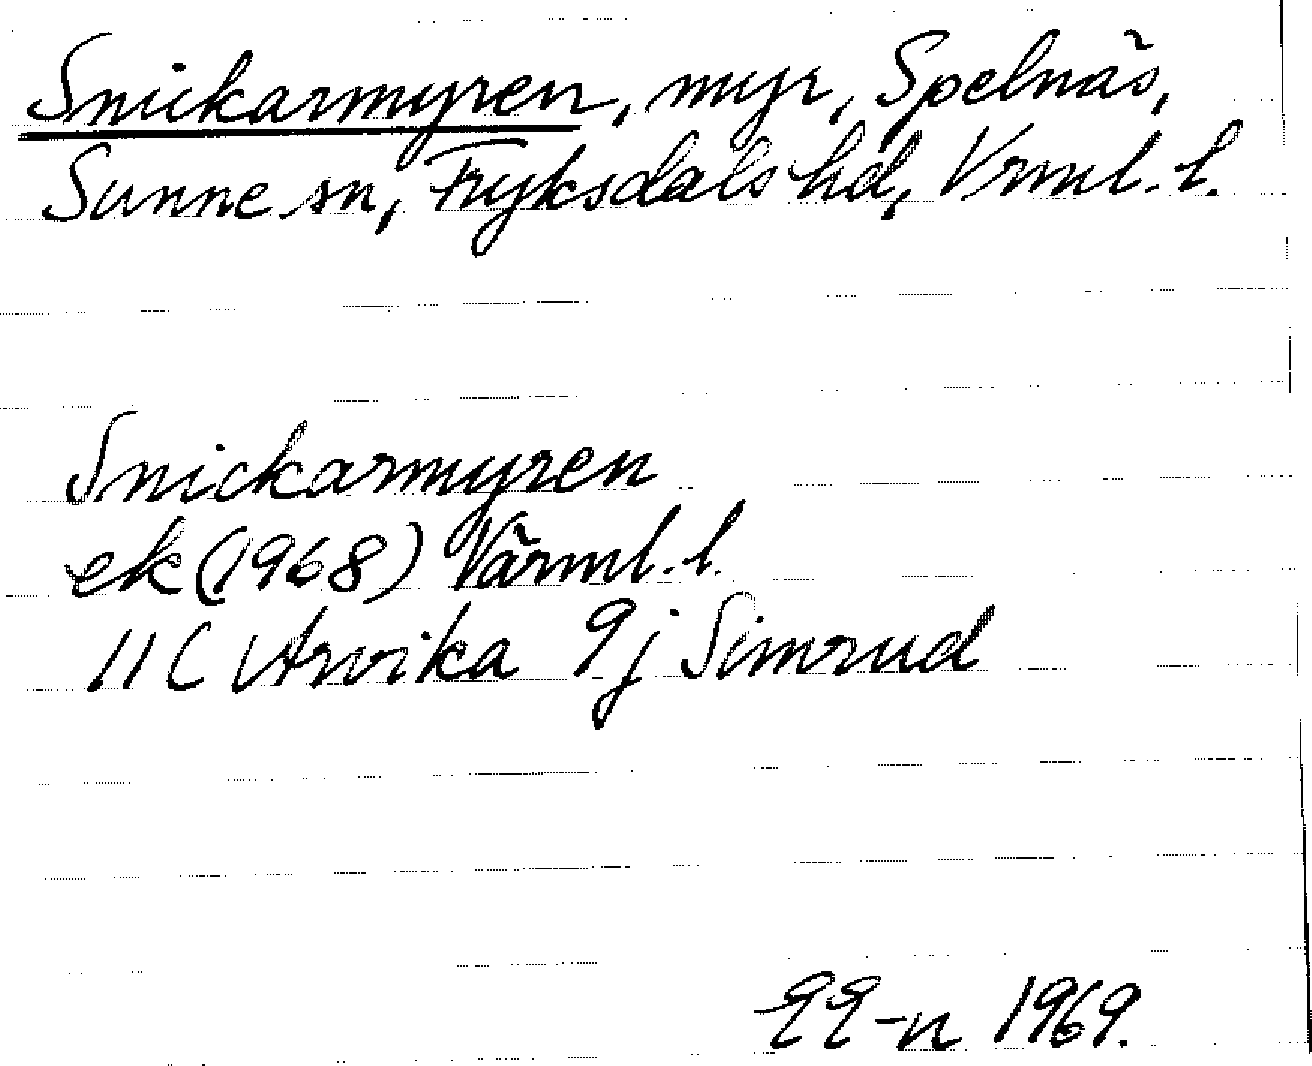 Snickarmyren, myr, Spelnäs,
Sunne sn, Fryksdals hd, Vrml. l.
Snickarmyren
ek (1968) Värml. l.
11C Arvika 9j Simrud
EE-n 1969.